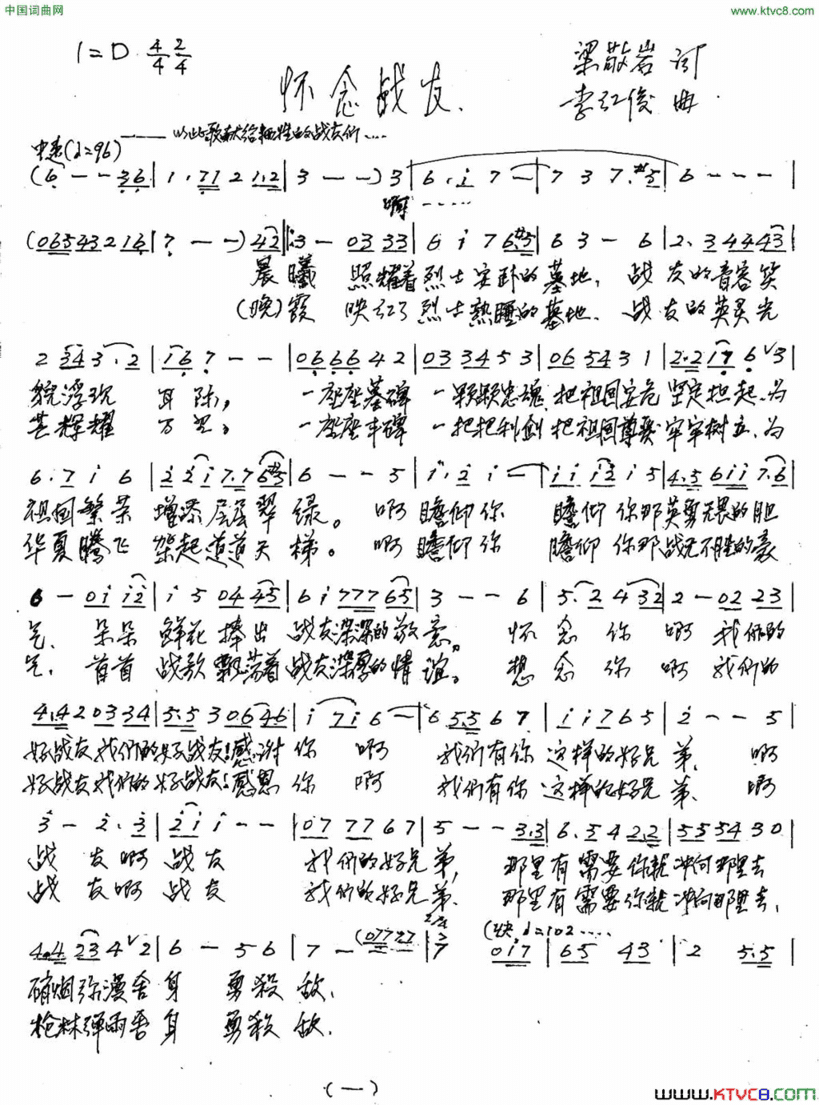 中国词曲网
www.ktvc8.com
1=D 4/4 2/4
怀念战友.
梁敬岩 词
李红俊 曲
——以此歌献给牺牲的战友们....
中速(♩=96)
(6 - - 3 6 | 1. 7 1 2 1.2 | 3 - - ) 3 | 6. i 7 - | 7 3 7. #5 | 6 - - - |
啊.....
(0 6 5 4 3 2 1 6 | 7 - - ) 4 2 |: 3 - 0 3 3 3 | 6 i 7 6 #5 | 6 3 - 6 | 2. 3 4 4 4 3 |
晨曦 照耀着烈士安卧的墓地, 战友的音容笑
(晚)霞 映红了烈士熟睡的墓地、 战友的英灵光
2 3 4 3 . 2 | i 6 7 - - | 0 6 6 6 4 2 | 0 3 3 4 5 3 | 0 6 5 4 3 1 | 2. 2 1 7 6 ∨ 3 |
貌浮现 耳际, 一座座墓碑 一颗颗忠魂, 把祖国安危 坚定担起、为
芒辉耀 万里; 一座座丰碑 一把把利剑 把祖国尊严 牢牢树立、为
6. 7 i 6 | 2 2 i 7. 7 6 #5 | 6 - - 5 | i. 2 i - | i i i 2 i 5 | 4. 5 6 i i 7. 6 |
祖国繁荣 增添层层翠绿。 啊 瞻仰你 瞻仰 你那英勇无畏的胆
华夏腾飞 架起道道天梯。 啊 瞻仰你 瞻仰 你那战无不胜的豪
6 - 0 i i 2 | i 5 0 4 4 5 | 6 i 7 7 7 6 5 | 3 - - 6 | 5. 2 4 3 2 | 2 - 0 2 2 3 |
气、 朵朵 鲜花 捧出 战友深深的敬意。 怀念你 啊 我们的
气, 首首 战歌 飘荡着战友深厚的情谊。 想念你 啊 我们的
4. 4 2 0 3 3 4 | 5. 5 3 0 6 4 6 | i 7 i 6 - | 6 5. 5 6 7 | i i 7 6 5 | 2 - - 5 |
好战友我们的好战友!感谢你 啊 我们有你 这样的好兄弟、 啊
好战友我们的好战友!感恩你 啊 我们有你 这样的好兄弟、 啊
3 - 2. 3 | 2 i i - - | 0 7 7 7 6 7 | 5 - - 3. 3 | 6. 5 4 2. 2 | 5 5 5 4 3 0 |
战友啊 战友 我们的好兄弟, 那里有需要你就冲向那里去
战友啊 战友 我们的好兄弟. 那里有需要你就冲向那里去,
2/4
(快 ♩=102....
4. 4 2 3 4 ∨ 2 | 6 - 5 6 | 7 - (0 7 7 2 7 | 7 0 i 7 | 6 5 4 3 | 2 5. 5 |
硝烟弥漫舍身 勇殺敌、
枪林弹雨吾身 勇殺敌.
(一)
www.KTVC8.com